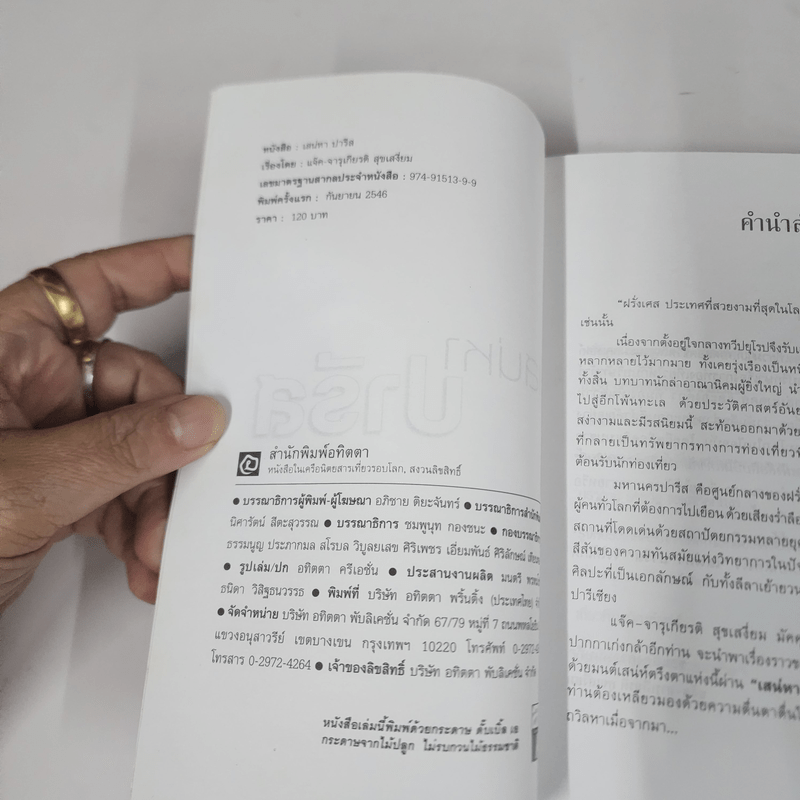 หนังสือ : เสน่หา ปารีส
เรื่องโดย : แจ๊ค-จารุเกียรติ สุขเสงี่ยม
เลขมาตรฐานสากลประจำหนังสือ : 974-91513-9-9
พิมพ์ครั้งแรก : กันยายน 2546
ราคา : 120 บาท
สำนักพิมพ์อทิตตา
หนังสือในเครือนิตยสารเที่ยวรอบโลก. สงวนลิขสิทธิ์
● บรรณาธิการผู้พิมพ์-ผู้โฆษณา อภิชาย ติยะจันทร์ ● บรรณาธิการสำนักพิมพ์
นิศารัตน์ ลีตะสุวรรณ ● บรรณาธิการ ชมพูนุท กองชนะ ●
ธรรมนูญ ประภากมล สโรบล วิบูลยเลข ศิริเพชร เอี่ยมพันธ์ ศิริลักษณ์
● รูปเล่ม/ปก อทิตตา ครีเอชั่น ● ประสานงานผลิต มนตรี
ธนิดา วิสิฐธนวรรธ ● พิมพ์ที่ บริษัท อทิตตา พริ้นติ้ง (ประเทศไทย)
● จัดจำหน่าย บริษัท อทิตตา พับลิเคชั่น จำกัด 67/79 หมู่ที่ 7 ถนนพหลโยธิน
แขวงอนุสาวรีย์ เขตบางเขน กรุงเทพฯ 10220 โทรศัพท์ 0-2972-
โทรสาร 0-2972-4264 ● เจ้าของลิขสิทธิ์ บริษัท อทิตตา พับลิเคชั่น จำกัด
หนังสือเล่มนี้พิมพ์ด้วยกระดาษ ดั๊บเบิ้ล เอ
กระดาษจากไม้ปลูก ไม่รบกวนไม้ธรรมชาติ
คำนำ
"ฝรั่งเศส ประเทศที่สวยงามที่สุดในโล
เช่นนั้น
เนื่องจากตั้งอยู่ใจกลางทวีปยุโรปจึงรับ
หลากหลายไว้มากมาย ทั้งเคยรุ่งเรืองเป็น
ทั้งสิ้น บทบาทนักล่าอาณานิคมผู้ยิ่งใหญ่
ไปสู่อีกโพ้นทะเล ด้วยประวัติศาสตร์อัน
สง่างามและมีรสนิยมนี้ สะท้อนออกมาด้วย
ที่กลายเป็นทรัพยากรทางการท่องเที่ยว
ต้อนรับนักท่องเที่ยว
มหานครปารีส คือศูนย์กลางของ
ผู้คนทั่วโลกที่ต้องการไปเยือน ด้วยเสียงร่ำลือ
สถานที่โดดเด่นด้วยสถาปัตยกรรมหลาย
สีสันของความทันสมัยแห่งวิทยาการใน
ศิลปะที่เป็นเอกลักษณ์ กับทั้งลีลาเย้ายวน
ปารีเซียง
แจ๊ค-จารุเกียรติ สุขเสงี่ยม
ปากกาเก่งกล้าอีกท่าน จะนำพาเรื่องราว
ด้วยมนต์เสน่ห์ตรึงตาแห่งนี้ผ่าน "เสน่หา
ท่านต้องเหลียวมองด้วยความตื่นตาตื่นใ
ถวิลหาเมื่อจากมา...